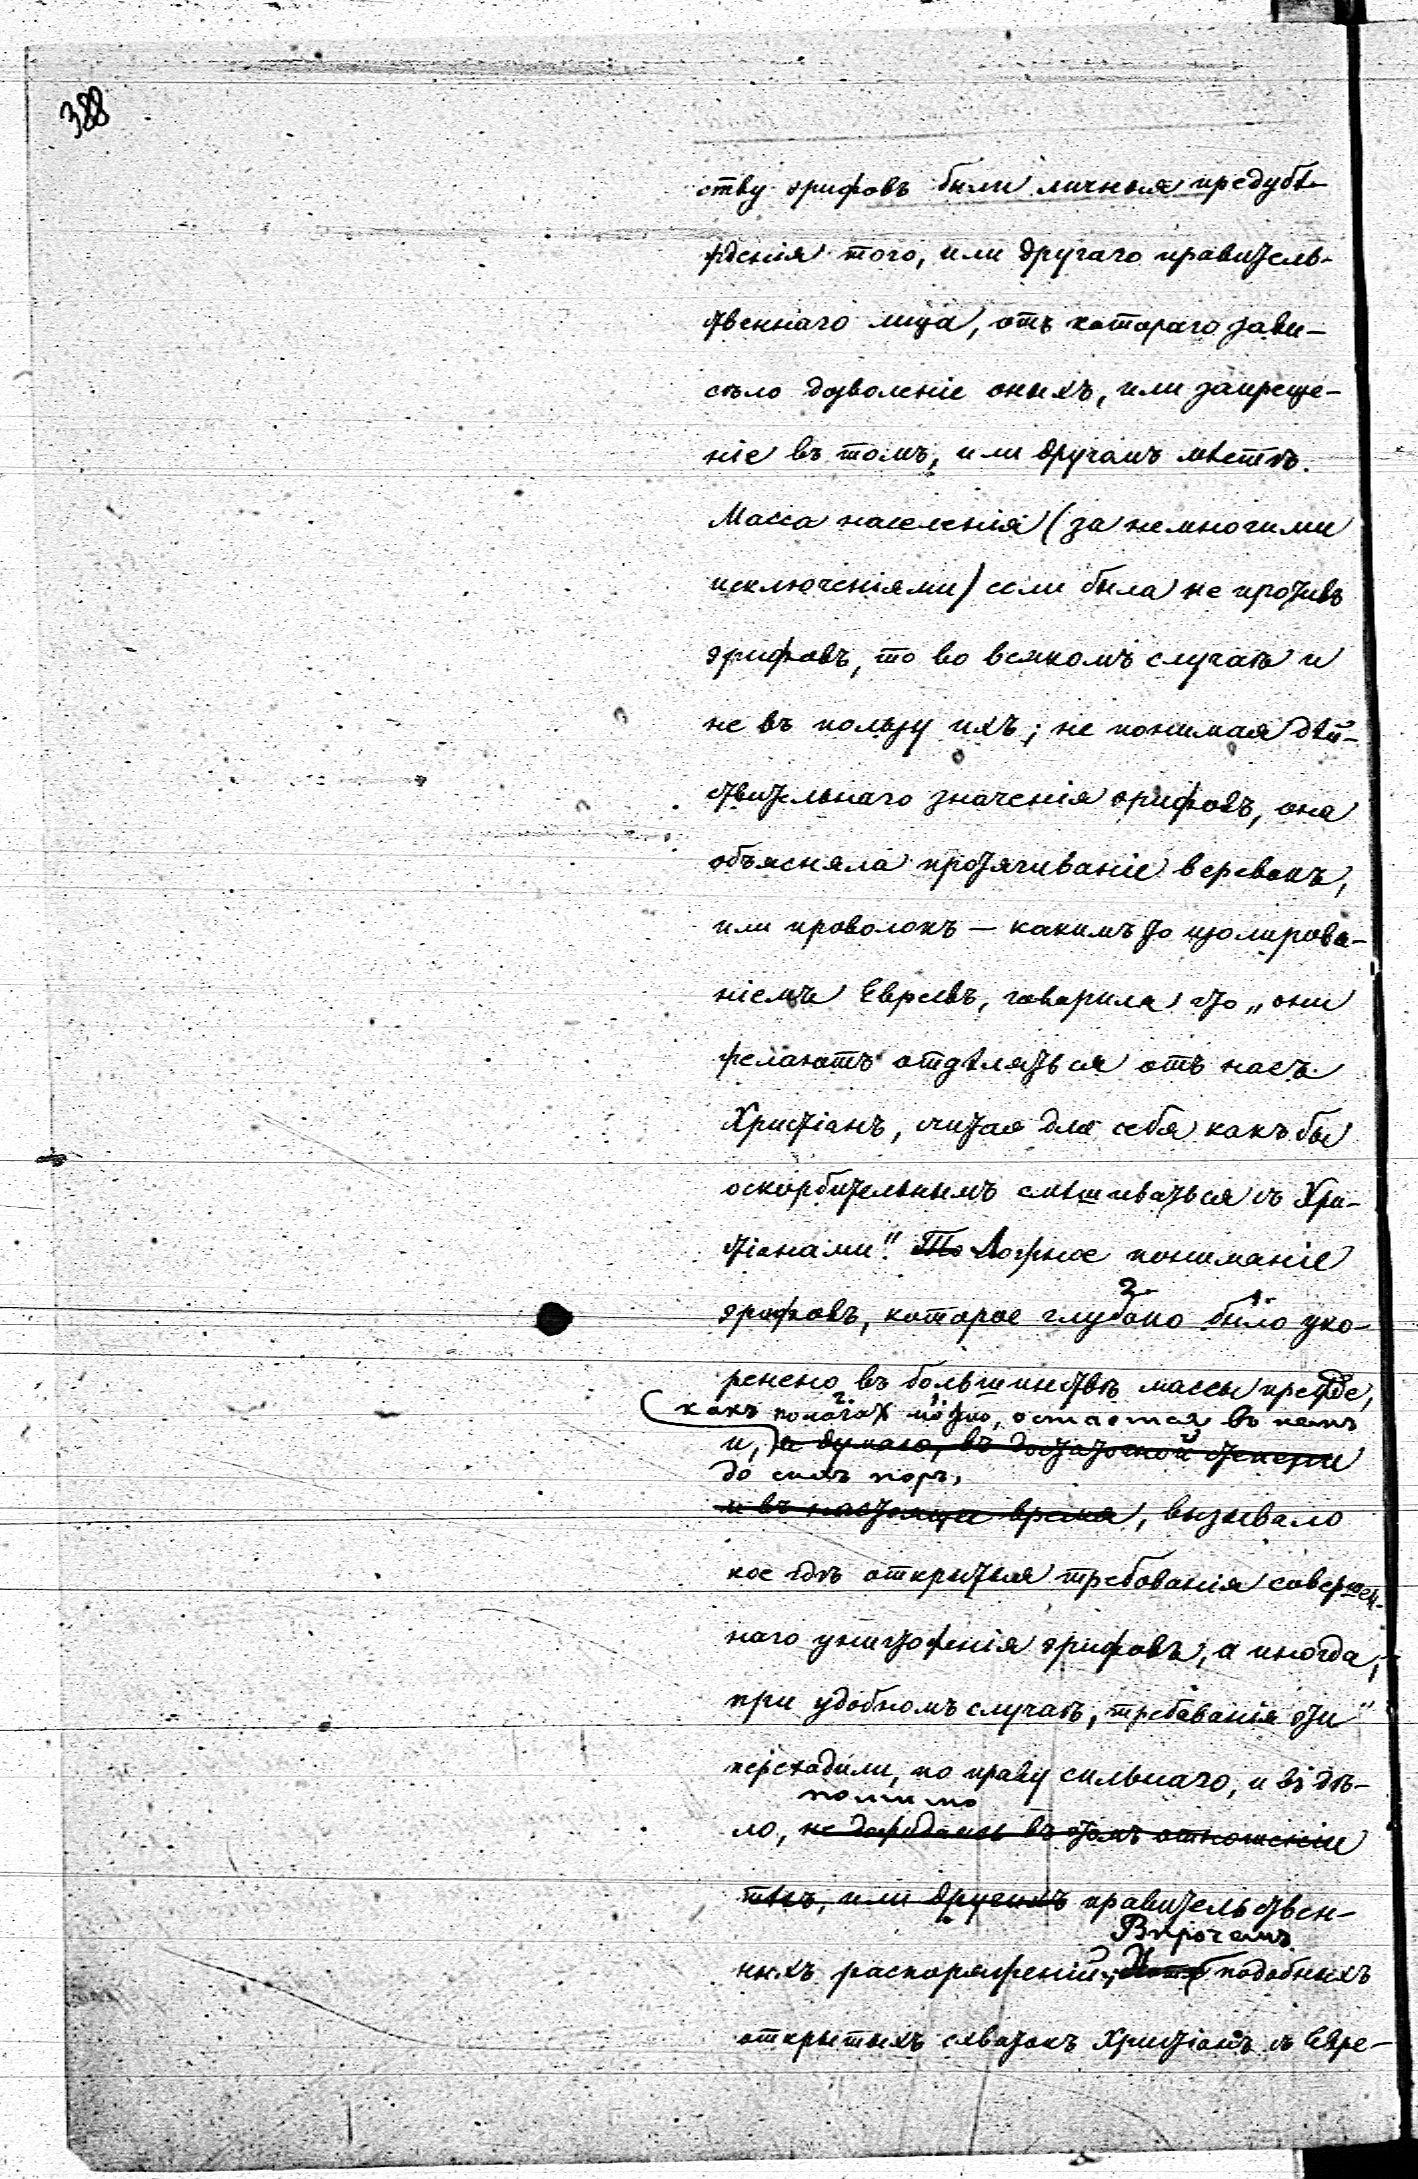 388
ству эрифовъ были личныя предубѣ-
жденія того, или другаго правитель-
ственнаго лица, отъ котораго зави-
сѣло дозволеніе оныхъ, или запреще-
ніе въ томъ, или другомъ мѣстѣ.
Масса населенія (за немногими
исключеніями) если была не противъ
эрифовъ, то во всякомъ случаѣ и
не въ пользу ихъ; не понимая дѣй-
ствительнаго значенія эрифовъ, она
объясняла протягиваніе веревокъ,
или проволокъ — какимъ то изолирова-
ніемъ Евреевъ, говорила что „они
желаютъ отдѣляться отъ насъ
Христіанъ, считая для себя какъ бы
оскорбительнымъ смѣшиваться съ Хри-
стіанами". То Ложное пониманіе
эрифовъ, которое глубоко было уко-
ренено въ большинствѣ массы прежде,
какъ полагать можно, остается въ немъ
и, я думаю, въ достаточной степени
до сихъ поръ,
и въ настоящее время, вызывало
кое гдѣ открытыя требованія совершен-
наго уничтоженія эрифовъ, а иногда,
при удобномъ случаѣ, требованія эти
переходили, по праву сильнаго, и въ дѣ-
помимо
ло, не дожидаясь въ этомъ отношеніи
тѣхъ, или другихъ правительствен-
Впрочемъ
ныхъ распоряженій; подобныхъ
открытыхъ схватокъ Христіанъ съ Евре-